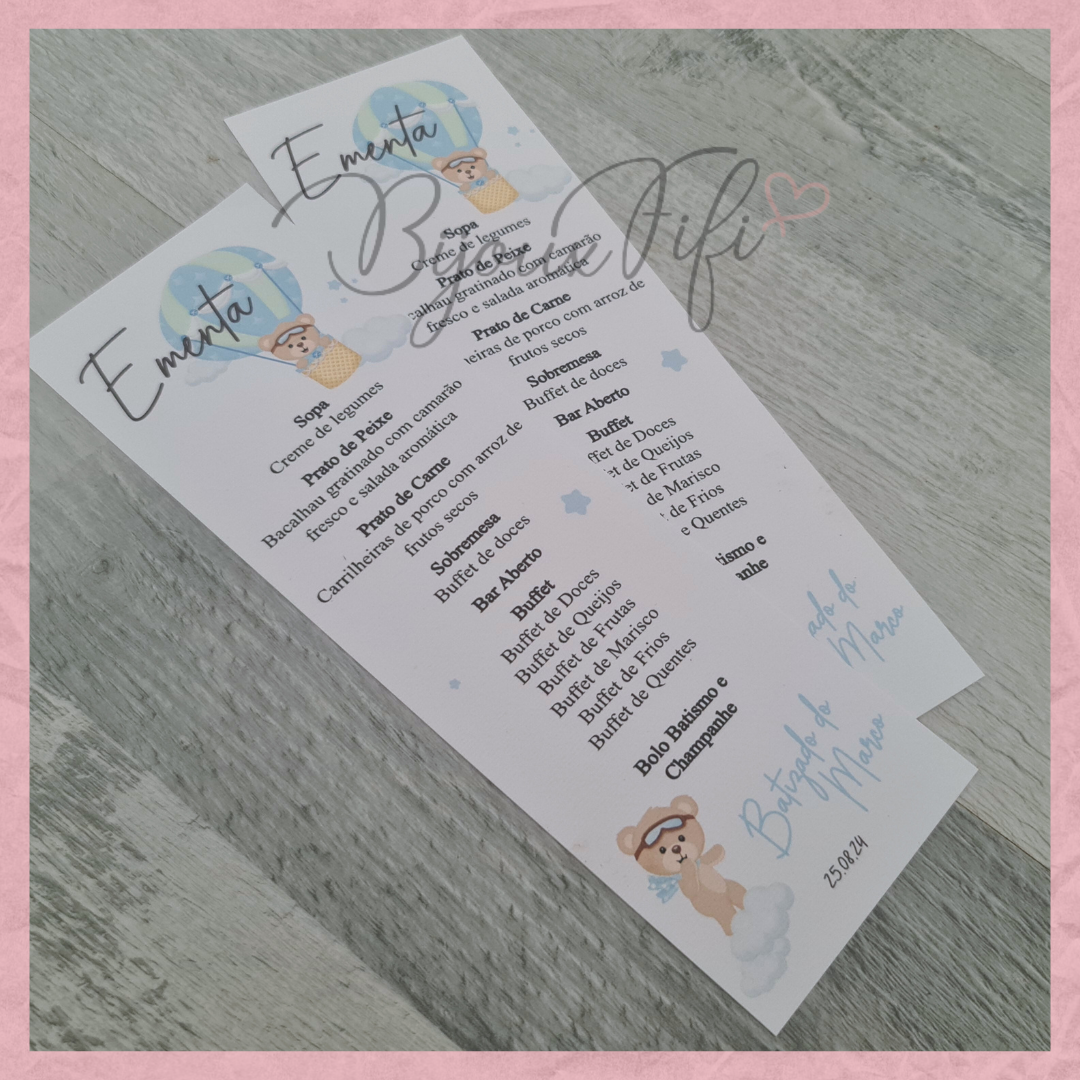 Ementa
Sopa
Creme de legumes
Prato de Peixe
Bacalhau gratinado com camarão
fresco e salada aromática
Prato de Carne
Carrilheiras de porco com arroz de
frutos secos
Sobremesa
Buffet de doces
Bar Aberto
Buffet
Buffet de Doces
Buffet de Queijos
Buffet de Frutas
Buffet de Marisco
Buffet de Frios
Buffet de Quentes
Bolo Batismo e
Champanhe
Batizado do
Marco
25.08.24
Ementa
Sopa
Creme de legumes
Prato de Peixe
calhau gratinado com camarão
fresco e salada aromática
Prato de Carne
eiras de porco com arroz de
frutos secos
Sobremesa
Buffet de doces
Bar Aberto
Buffet
ffet de Doces
et de Queijos
et de Frutas
de Marisco
de Frios
e Quentes
tismo e
anhe
ado do
Marco
BijouxFifi